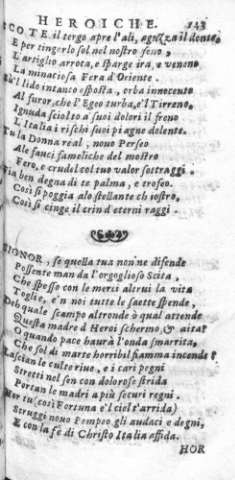 HEROICHE. 143
SCOTE il tergo apre l'ali, aguzza il dente,
E per tingerlo sol nel nostro seno,
L'artiglio arrota, e sparge ira, e veneno
La minacciosa Fera d'Oriente.
E'l lido intanto esposta, orba innocente
Al furor, che l'Egeo turba, e'l Tirreno,
Ignuda sciolto a suoi dolori il freno
L'Italia i rischi suoi piagne dolente.
Tu la Donna real, nouo Perseo
Ale fauci fameliche del mostro
Fero, e crudel col tuo valor sottraggi.
Fia ben degna di te palma, e trofeo.
Così si poggia alo stellante chiostro,
Così si cinge il crin d'eterni raggi.
SIGNOR, se quella tua non ne difende
Possente man da l'orgoglioso Scita,
Che spesso con le merci altrui la vita
Toglie, e'n noi tutte le saette spende,
Deh quale scampo altronde ò qual attende
Questa madre d'Heroi schermo, & aita?
O quando pace haurà l'onda smarrita,
Che sol di marte horribil fiamma incende?
Lascian le culte riue, e i cari pegni
Stretti nel sen con dolorose strida
Portan le madri a più securi regni.
Hor tu (così Fortuna e'l ciel t'arrida)
Struggi nouo Pompeo gli audaci e degni,
E con la fè di Christo Italia affida.
HOR